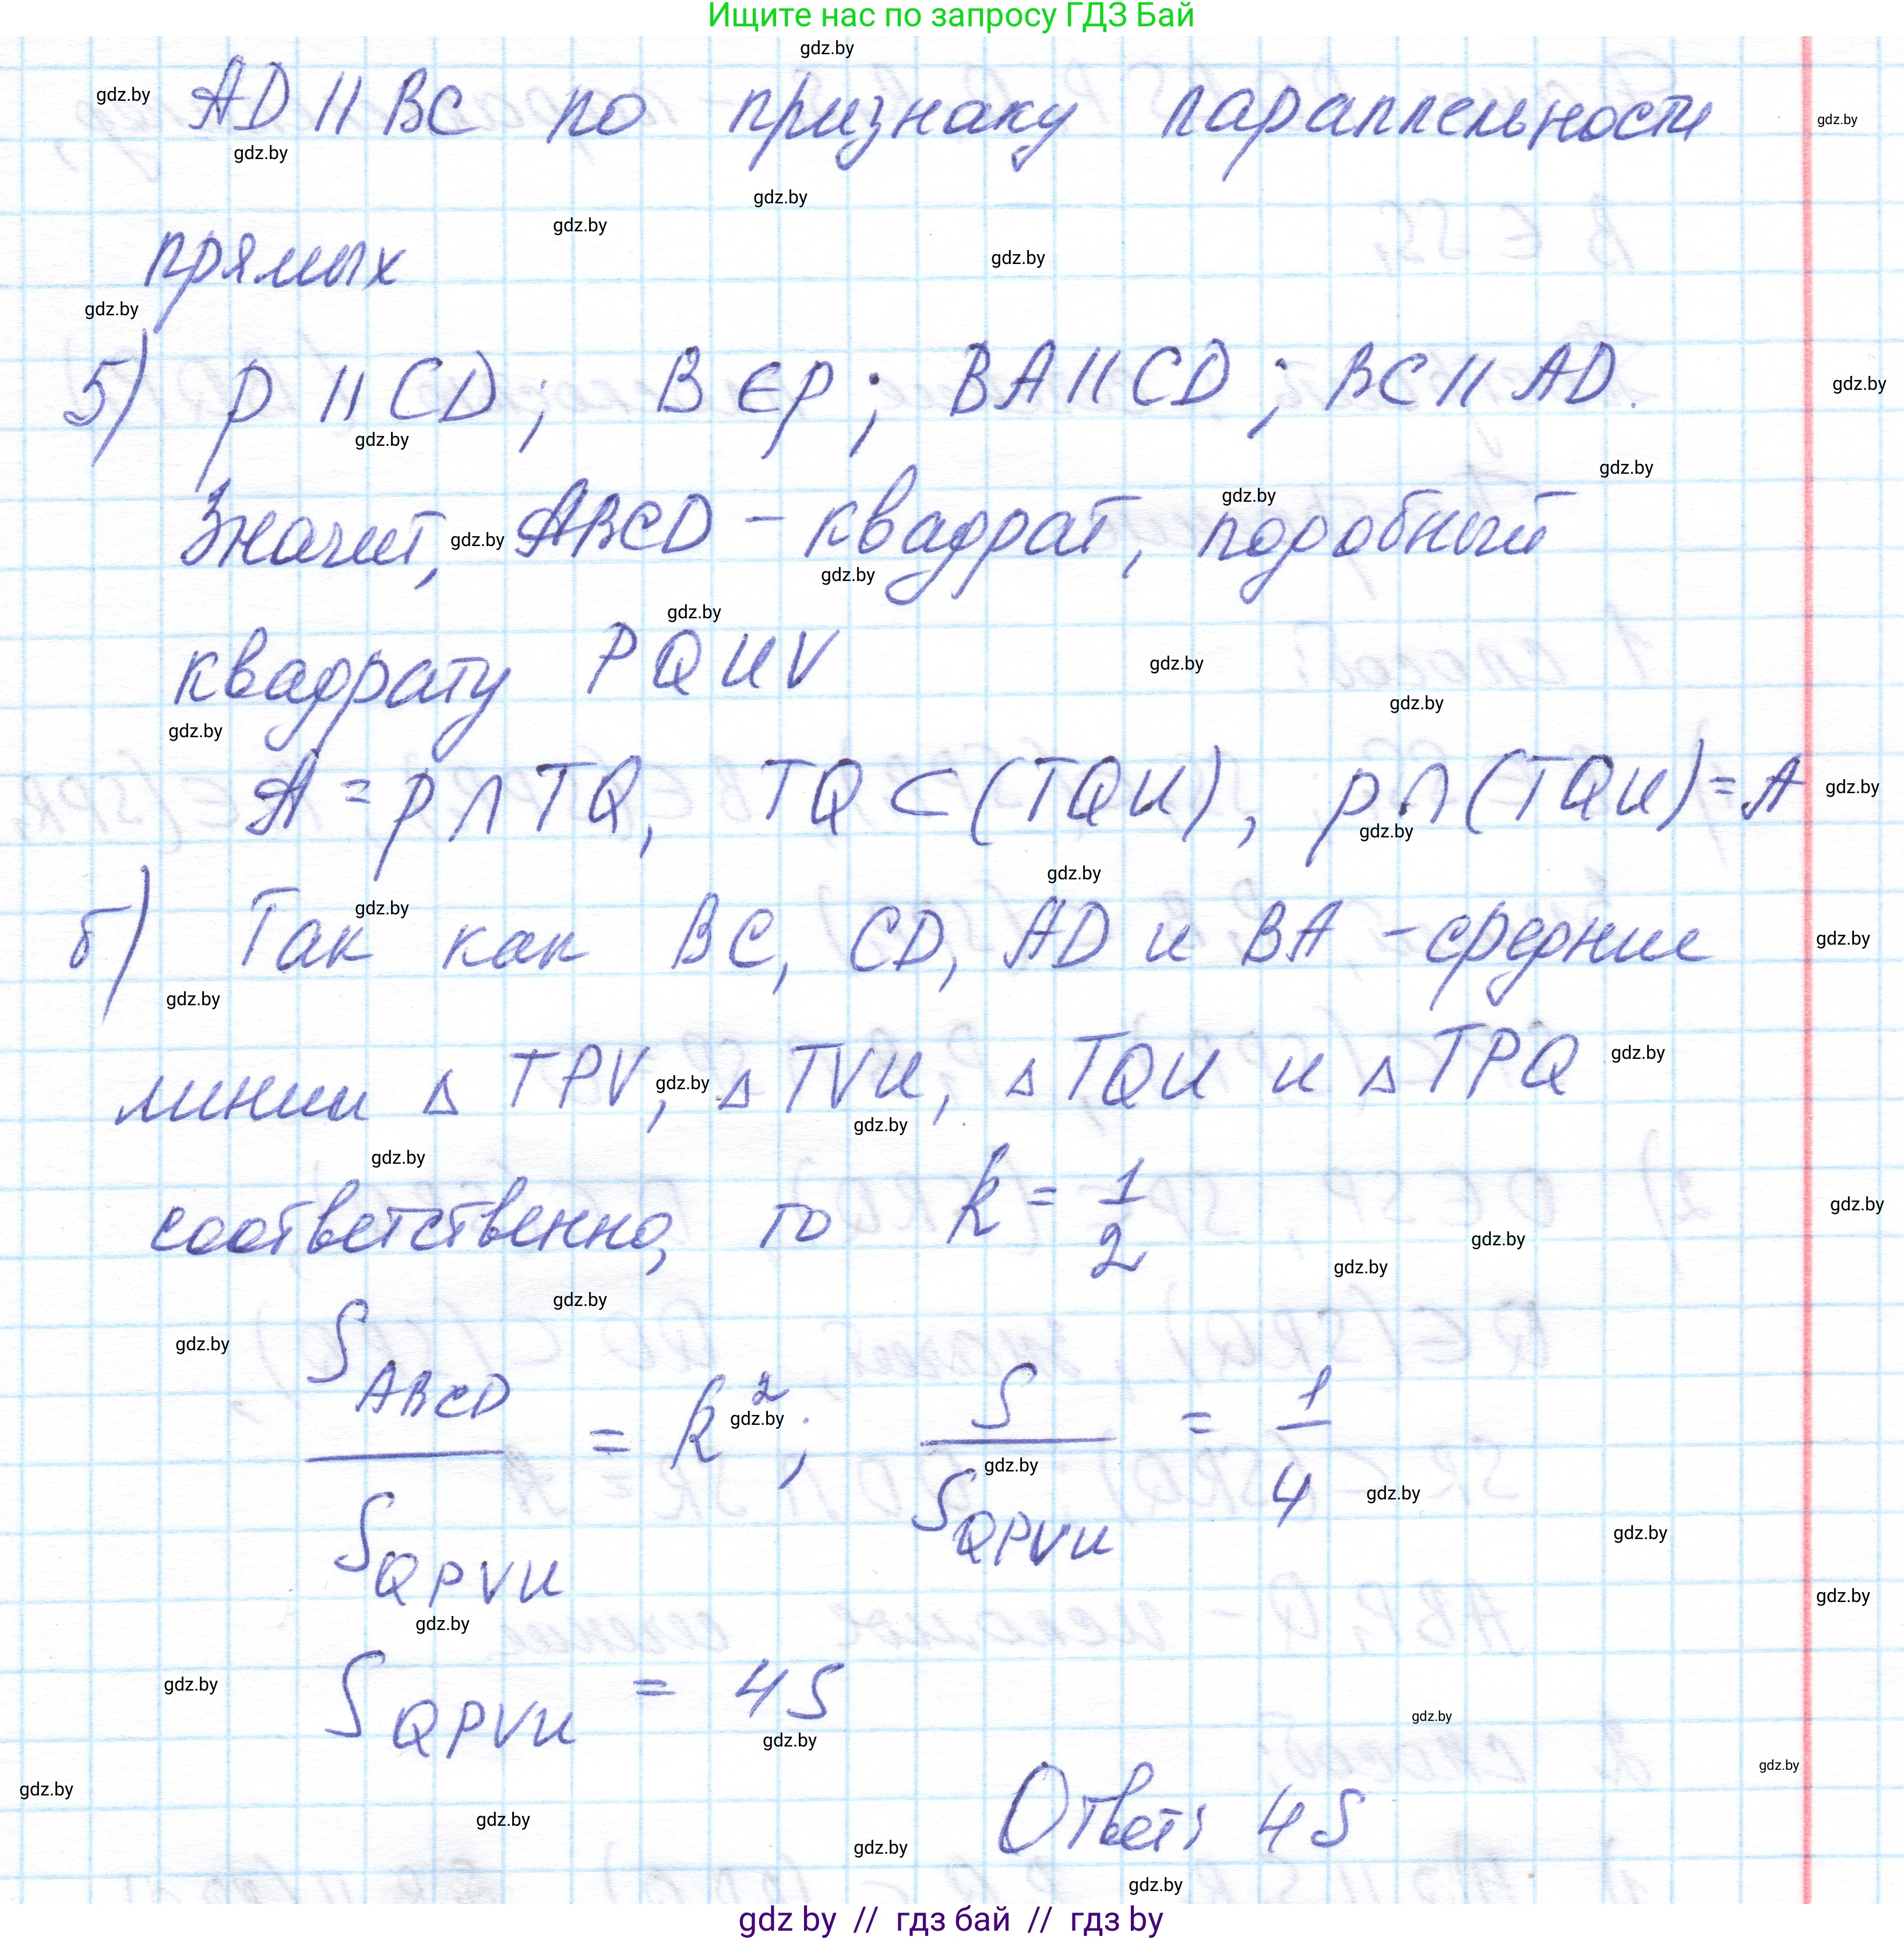 Ищите нас по запросу ГДЗ Бай
AD || BC по признаку параллельности
прямых
5) p || CD; B ∈ p; BA || CD; BC || AD.
Значит, ABCD - квадрат, подобный
квадрату PQUV
A = p ∩ TQ, TQ ⊂ (TQU), p ∩ (TQU) = A
б) Так как BC, CD, AD и BA - средние
линии △ TPV, △ TVU, △ TQU и △ TPQ
соответственно, то k = 1/2
S_ABCD / S_QPVU = k²; S / S_QPVU = 1/4
S_QPVU = 4S
Ответ: 4S
gdz by // гдз бай // гдз by